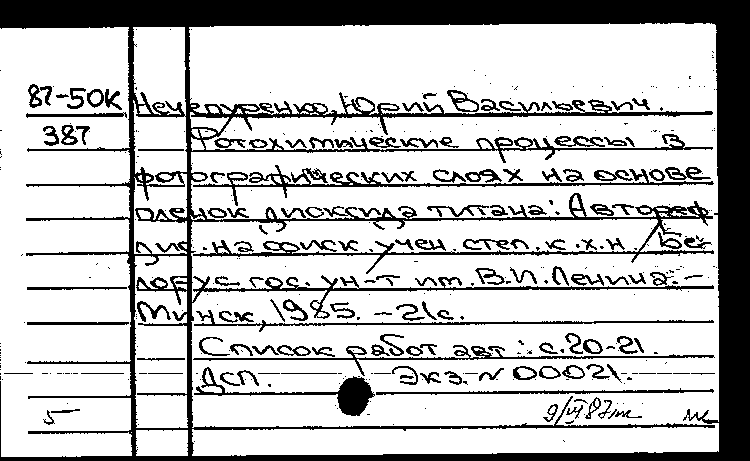 87-50К Нечепуренко, Юрий Васильевич.
387 Фотохимические процессы в
фотографических слоях на основе
пленок диоксида титана: Автореф.
дис. на соиск. учен. степ. к.х.н. / Бе-
лорус. гос. ун-т им. В.И. Ленина. –
Минск, 1985. – 21с.
Список работ авт.: с.20-21.
ДСП. Экз. N 00021.
5 9/VI 87